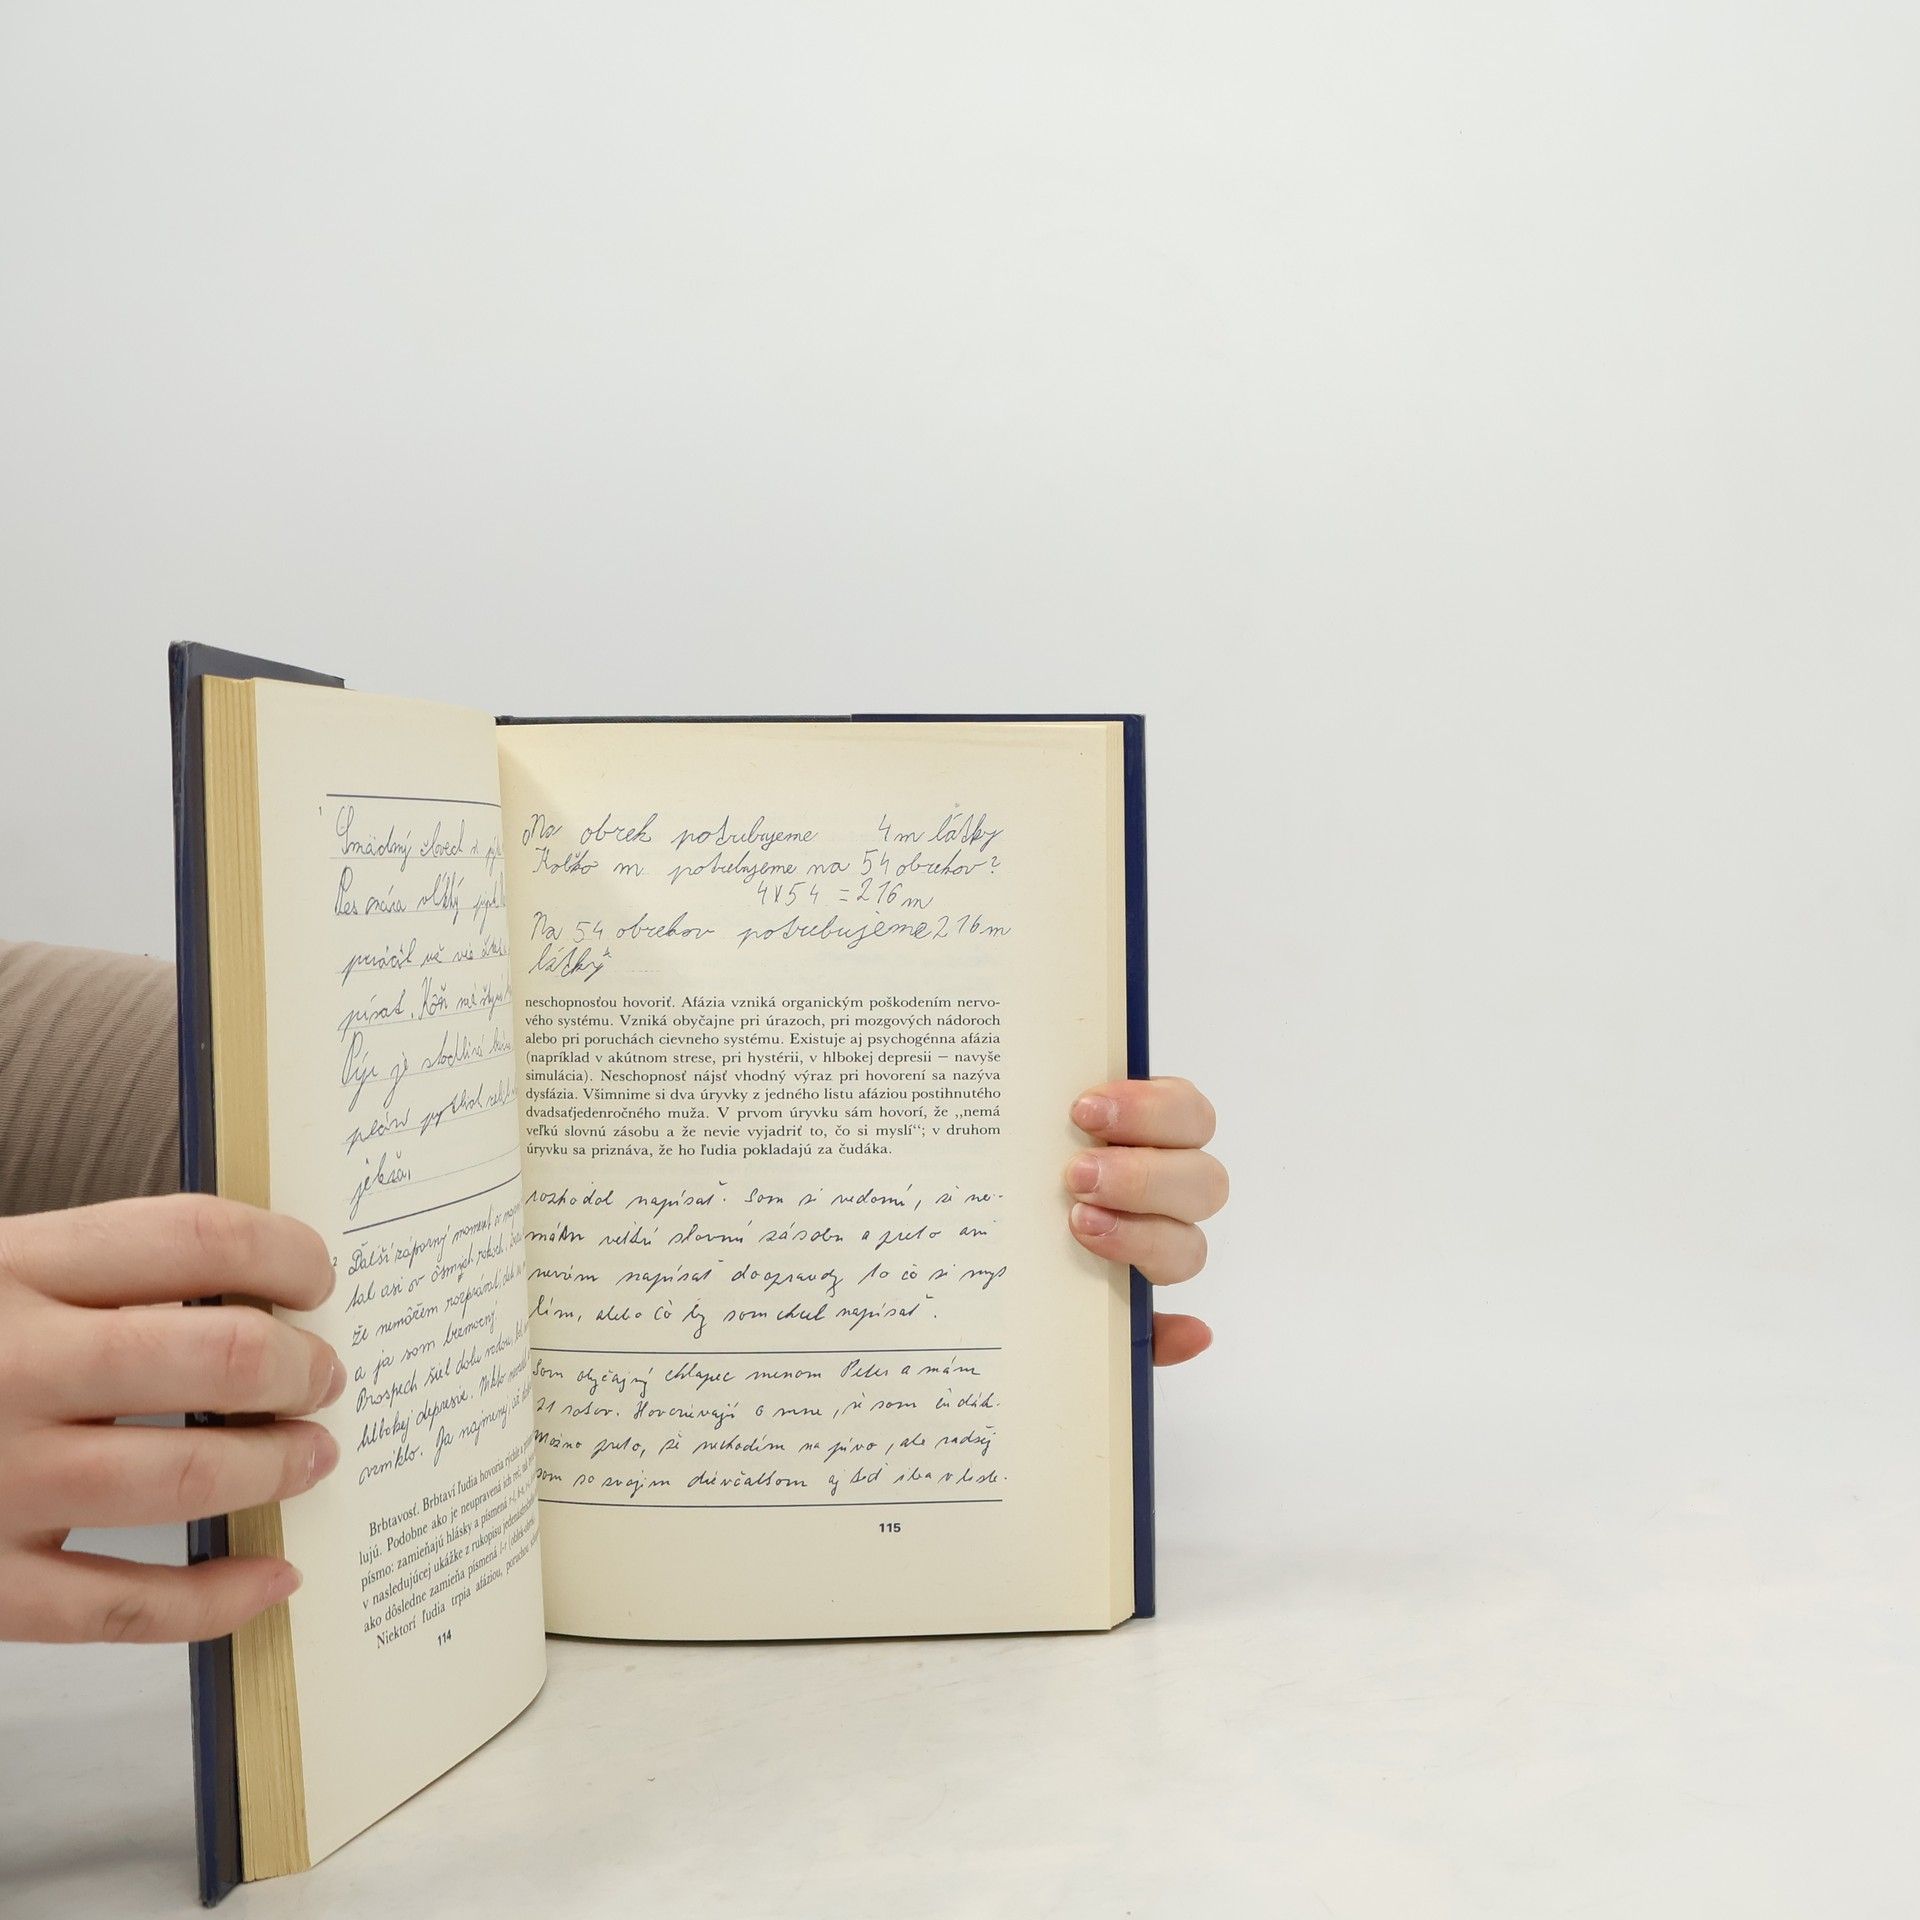 1
Smädný človek si
Pes máva vlhký
písať. Kôň má štyri
Pýr je škodlivá
jeksa.
2
Ďalší záporný moment v mojom
tal asi v ôsmych rokoch.
že nemôžem rozprávať,
a ja som bezmocný
Prospech šiel dolu vodou,
hlbokej depresie. Nikto nevedel
vzniklo. Ja najmenej,
Brbtavosť. Brbtaví ľudia hovoria rýchlo a
lujú. Podobne ako je neupravená ich reč, má
písmo: zamieňajú hlásky a písmená r-l,
v nasledujúcej ukážke z rukopisu
ako dôsledne zamieňa písmená l-r
Niektorí ľudia trpia afáziou, poruchou
114
Na obrek potrebujeme 4 m látky
Koľko m potrebujeme na 54 obrekov?
4 x 54 = 216 m
Na 54 obrekov potrebujeme 216 m
látky
neschopnosťou hovoriť. Afázia vzniká organickým poškodením nervo-
vého systému. Vzniká obyčajne pri úrazoch, pri mozgových nádoroch
alebo pri poruchách cievneho systému. Existuje aj psychogénna afázia
(napríklad v akútnom strese, pri hystérii, v hlbokej depresii — navyše
simulácia). Neschopnosť nájsť vhodný výraz pri hovorení sa nazýva
dysfázia. Všimnime si dva úryvky z jedného listu afáziou postihnutého
dvadsaťjedenročného muža. V prvom úryvku sám hovorí, že ,,nemá
veľkú slovnú zásobu a že nevie vyjadriť to, čo si myslí“; v druhom
úryvku sa priznáva, že ho ľudia pokladajú za čudáka.
rozhodol napísať. Som si vedomí, že ne-
mám veľkú slovnú zásobu a preto ani
neviem napísať doopravdy to čo si mys
lím, alebo čo by som chcel napísať.
Som obyčajný chlapec menom Peter a mám
21 rokov. Hovorievajú o mne, že som čudák.
Možno preto, že nechodím na pivo, ale radšej
som so svojim dievčaťom aj keď iba v liste.
115